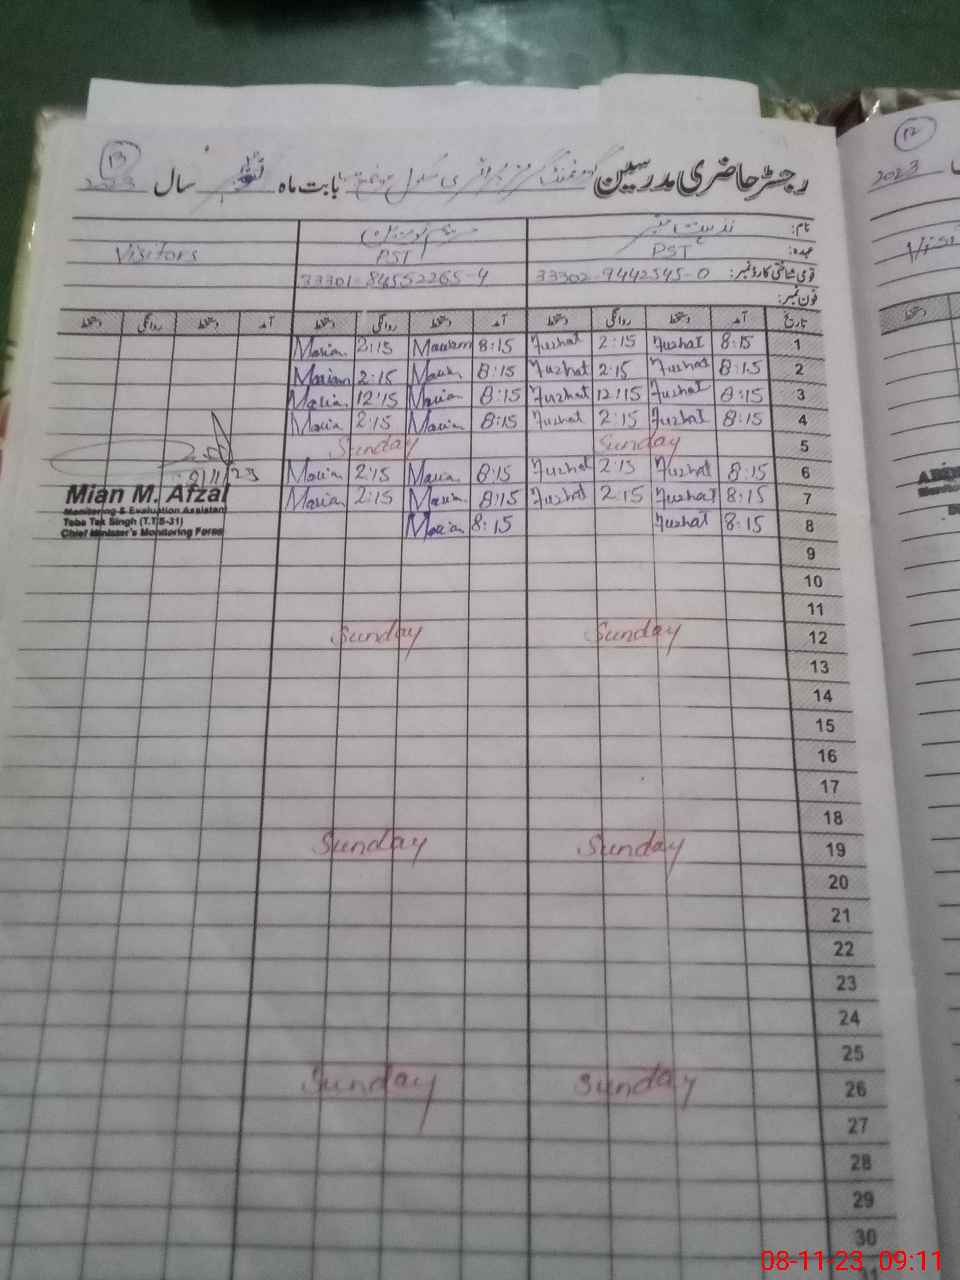 13
رجسٹر حاضری مدرسین گورنمنٹ گرلز پرائمری سکول بابت ماہ نومبر سال 2023
نام:
عہدہ: PST PST Visitors
قومی شناختی کارڈ نمبر: 33302-9442545-0 33301-84552265-4
فون نمبر:
تاریخ آمد دستخط روانگی دستخط آمد دستخط روانگی دستخط آمد دستخط روانگی دستخط
1 8:15 Nuzhat 2:15 Nuzhat 8:15 Mariam 2:15 Mariam
2 8:15 Nuzhat 2:15 Nuzhat 8:15 Mariam 2:15 Mariam
3 8:15 Nuzhat 12:15 Nuzhat 8:15 Mariam 12:15 Mariam
4 8:15 Nuzhat 2:15 Nuzhat 8:15 Mariam 2:15 Mariam
5 Sunday Sunday
6 8:15 Nuzhat 2:15 Nuzhat 8:15 Mariam 2:15 Mariam
7 8:15 Nuzhat 2:15 Nuzhat 8:15 Mariam 2:15 Mariam
8 8:15 Nuzhat 8:15 Mariam
9
10
11
12 Sunday Sunday
13
14
15
16
17
18
19 Sunday Sunday
20
21
22
23
24
25
26 Sunday Sunday
27
28
29
30
31
Mian M. Afzal
Monitoring & Evaluation Assistant
Toba Tek Singh (T.T.S-31)
Chief Minister's Monitoring Force
12
2023
دستخط
08-11-23 09:11